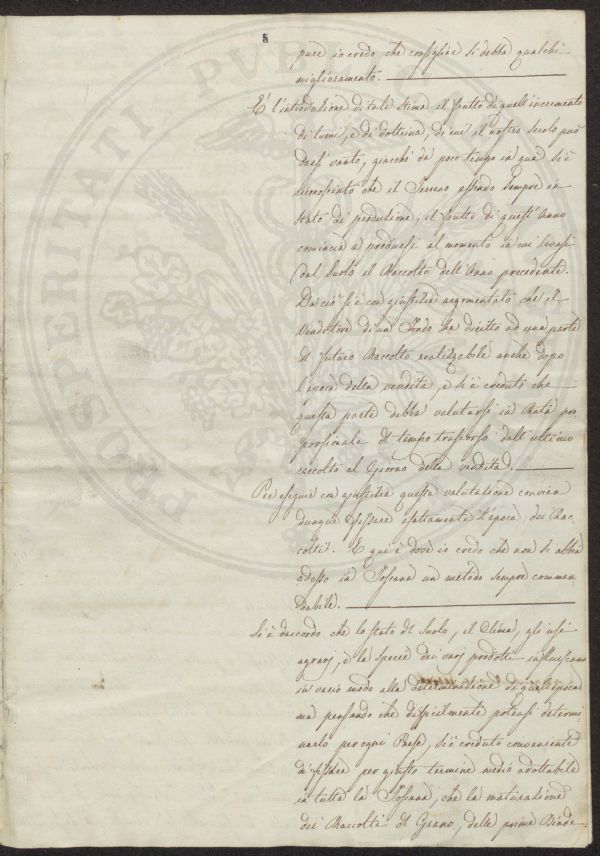 5
pure io credo che consigliar si debba qualche
miglioramento.
E' l'introduzione di tale stima il frutto di quell'incremento
di lumi, e di dottrina, di cui il nostro secolo può
darsi vanto, giacchè da poco tempo in quà si è
riconosciuto che il Terreno essendo sempre in
stato di produzione, il frutto di quest'Anno
comincia a prodursi al momento in cui levasi
dal Suolo il Raccolto dell'Anno precedente.
Da ciò si è con giustizia argomentato che il
Venditore di un Fondo ha diritto ad una parte
del futuro Raccolto realizzabile anche dopo
l'epoca della vendita, e si è creduto che
questa parte debba valutarsi in Rata pro
porzionale del tempo trascorso dall'ultimo
raccolto al Giorno della vendita.
Per eseguir con giustizia questa valutazione convien
dunque fissare esattamente l'epoca dei Rac
colti. E qui è dove io credo che non si abbia
adesso in Toscana un metodo sempre commen
dabile.
Si è d'accordo che lo stato del Suolo, il Clima, gli usi
agrarj, e la specie dei varj prodotti influiscano
in vario modo alla determinazione di quell'epoca
ma pensando che difficilmente poteasi determi
narlo per ogni Paese, si è creduto conveniente
di fissare per giusto termine medio adottabile
in tutta la Toscana, che la maturazione
dei Raccolti del Grano, delle prime Biade
PROSPERITATI PUBLICAE